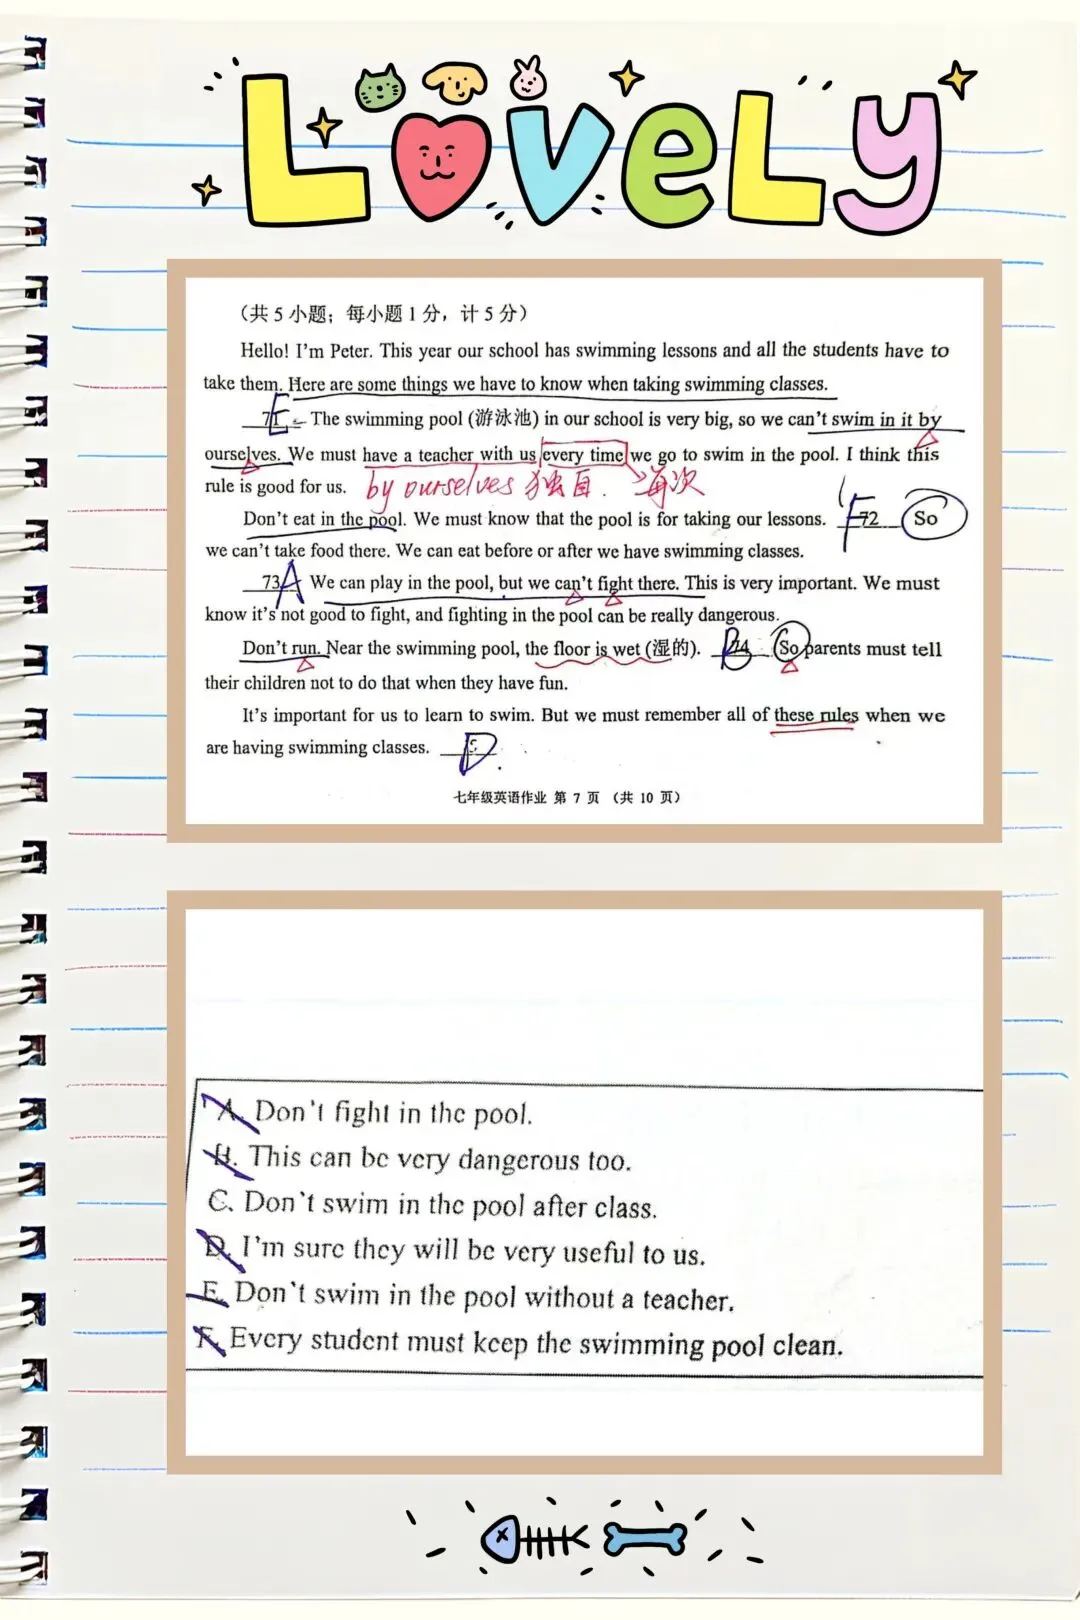 LOVELY
（共 5 小题；每小题 1 分，计 5 分）
Hello! I'm Peter. This year our school has swimming lessons and all the students have to
take them. Here are some things we have to know when taking swimming classes.
71 E The swimming pool (游泳池) in our school is very big, so we can't swim in it by
ourselves. We must have a teacher with us every time we go to swim in the pool. I think this
rule is good for us. by ourselves 独自. 每次
Don't eat in the pool. We must know that the pool is for taking our lessons. F 72 So
we can't take food there. We can eat before or after we have swimming classes.
73 A We can play in the pool, but we can't fight there. This is very important. We must
know it's not good to fight, and fighting in the pool can be really dangerous.
Don't run. Near the swimming pool, the floor is wet (湿的). B 74 So parents must tell
their children not to do that when they have fun.
It's important for us to learn to swim. But we must remember all of these rules when we
are having swimming classes. D
七年级英语作业 第 7 页 （共 10 页）
A. Don't fight in the pool.
B. This can be very dangerous too.
C. Don't swim in the pool after class.
D. I'm sure they will be very useful to us.
E. Don't swim in the pool without a teacher.
F. Every student must keep the swimming pool clean.